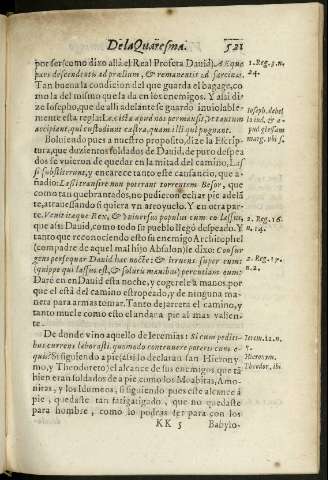 De la Quaresma. 521
por ser (como dixo allà el Real Profeta Dauid) Æque
pars descendentis ad prælium, & remanentis ad sarcinas.
Tan buena la condicion del que guarda el bagage, co
mo la del mismo que la da en los enemigos. Y assi di
ze Iosepho, que de alli adelante se guardò inuiolable-
mente esta regla:
accipiant, qui custodiunt castra, quam illi qui pugnant.
Boluiendo pues a nuestro proposito, dize la Escrip
tura, que duzientos soldados de Dauid, de puro despea
dos se vuieron de quedar en la mitad del camino, Las
si substiterunt, y encarece tanto este cansancio, que a-
nadio: Lassi transire non poterant torrentem Besor, que
como tan quebrantados, no pudieron echar pie adelá
te, atrauessando si quiera vn arroyuelo. Y en otra par
te. Venit itaque Rex, & vniuersus populus cum eo lassus,
que assi Dauid, como todo su pueblo llegò despeado. Y
tanto que reconociendo esto su enemigo Architophel
(compadre de aquel mal hijo Absalon) le dixo: Consur
gens persequar Dauid hac nocte: & irruens super eum
(quippe qui lassus est, & solutis manibus) percutiam eum:
Darè en en Dauid esta noche, y cogerele a manos, por
que el està del camino estropeado, y de ninguna ma-
nera para armas tomar. Tanto dejarreta el camino, y
tanto muele como esto el andar a pie al mas valien
te.
De donde vino aquello de Ieremias: Si cum pediti-
bus currens laborasti, quomodo contendere poteris cum e-
quis? Si siguiendo a pie (assi lo declaran san Hierony
mo, y Theodoreto) el alcance de sus enemigos, que tá
bien eran soldados de a pie, como los Moabitas, Amo-
nitas, y los Idumeos, si siguiendo pues este alcance à
pie, quedaste tan fatigatigado, que no quedaste
para hombre, como lo podras ser para con los
KK 5 Babylo-
1. Reg. 3. n.
24.
Ioseph. de bel
lo iud. & a-
pud glossam
marg. phi s.
2. Reg. 16.
n. 14.
2. Reg. 17.
n. 2.
Ierem. 12. n.
5.
Hieronym.
Theodor. ibi.